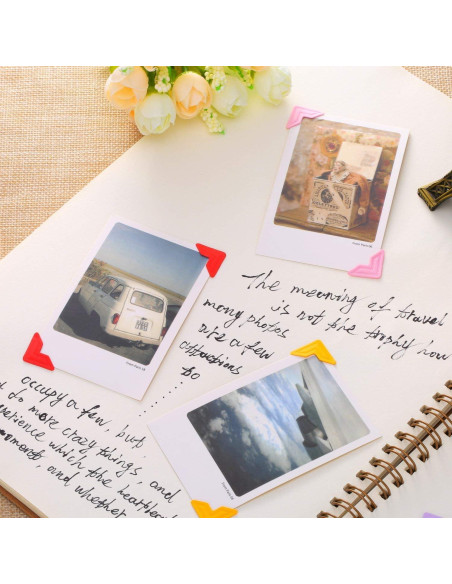 The meaning of travel
is not the trophy how
many photos
are a few
attractions
to
occupy a few but,
do more crazy things, and
which the heartbeat
and whether